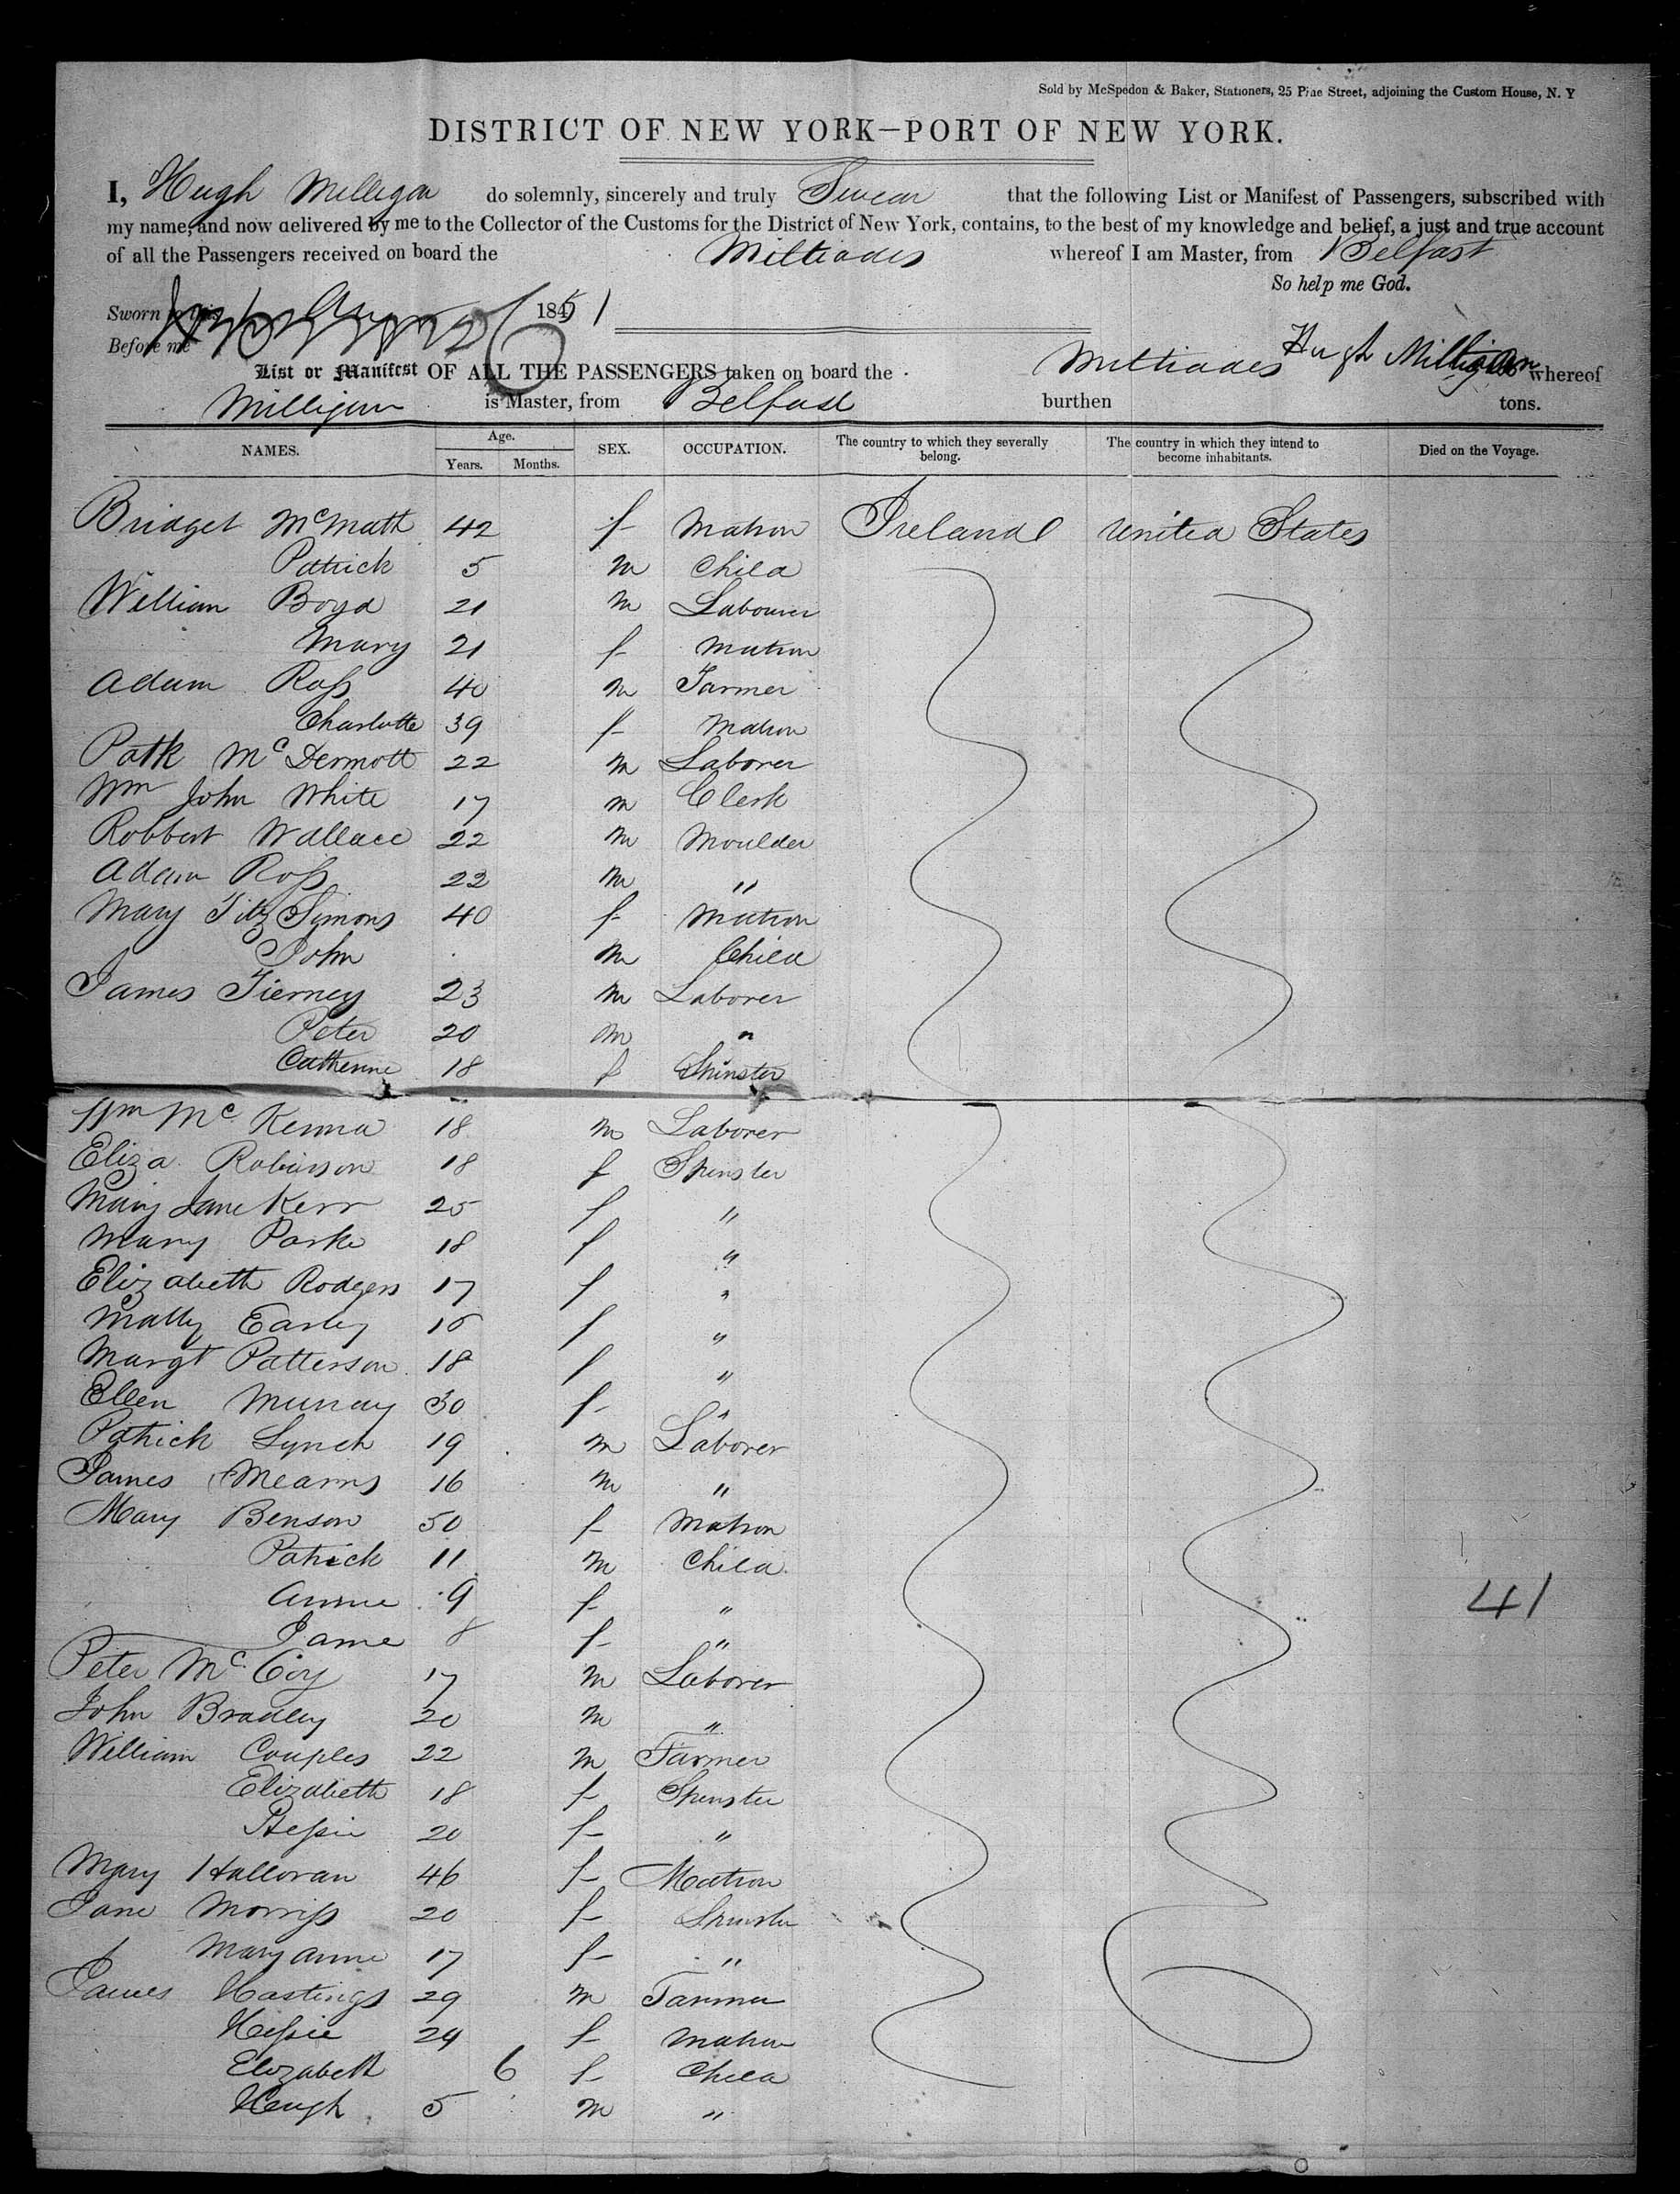 Sold by McSpedon & Baker, Stationers, 25 Pine Street, adjoining the Custom House, N. Y
DISTRICT OF NEW YORK—PORT OF NEW YORK.
I, Hugh Milligan do solemnly, sincerely and truly Swear that the following List or Manifest of Passengers, subscribed with
my name, and now delivered by me to the Collector of the Customs for the District of New York, contains, to the best of my knowledge and belief, a just and true account
of all the Passengers received on board the Miltiades whereof I am Master, from Belfast
So help me God.
Sworn to this 1851
Before me
Hugh Milligan
List or Manifest OF ALL THE PASSENGERS taken on board the Miltiades whereof
Milligan is Master, from Belfast burthen tons.
NAMES. Age. Years. Months. SEX. OCCUPATION. The country to which they severally belong. The country in which they intend to become inhabitants. Died on the Voyage.
Bridget McMath 42 f Matron Ireland United States
Patrick 5 m Child
William Boyd 21 m Labourer
Mary 21 f Matron
Adam Ross 40 m Farmer
Charlotte 39 f Matron
Patk McDermott 22 m Laborer
Wm John White 17 m Clerk
Robbert Wallace 22 m Moulder
Adam Ross 22 m "
Mary Fitz Simons 40 f Matron
John m Child
James Tierney 23 m Laborer
Peter 20 m "
Catherine 18 f Spinster
Wm McKenna 18 m Laborer
Eliza Robinson 18 f Spinster
Mary Jane Kerr 25 f "
Mary Parke 18 f "
Elizabeth Rodgers 17 f "
Matty Earley f "
Margt Patterson 18 f "
Ellen Murray 30 f "
Patrick Lynch 19 m Laborer
James Mearns 16 m "
Mary Benson 50 f Matron
Patrick 11 m Child
Annie 9 f "
Jane 8 f "
41
Peter McCoy 17 m Laborer
John Bradley 20 m "
William Couples 22 m Farmer
Elizabeth 18 f Spinster
Bessie 20 f "
Mary Halloran 46 f Matron
Jane Morriss 20 f Spinster
Mary Anne 17 f "
James Hastings 29 m Farmer
Hessie 24 f Matron
Elizabeth 6 f Child
Hugh 5 m "